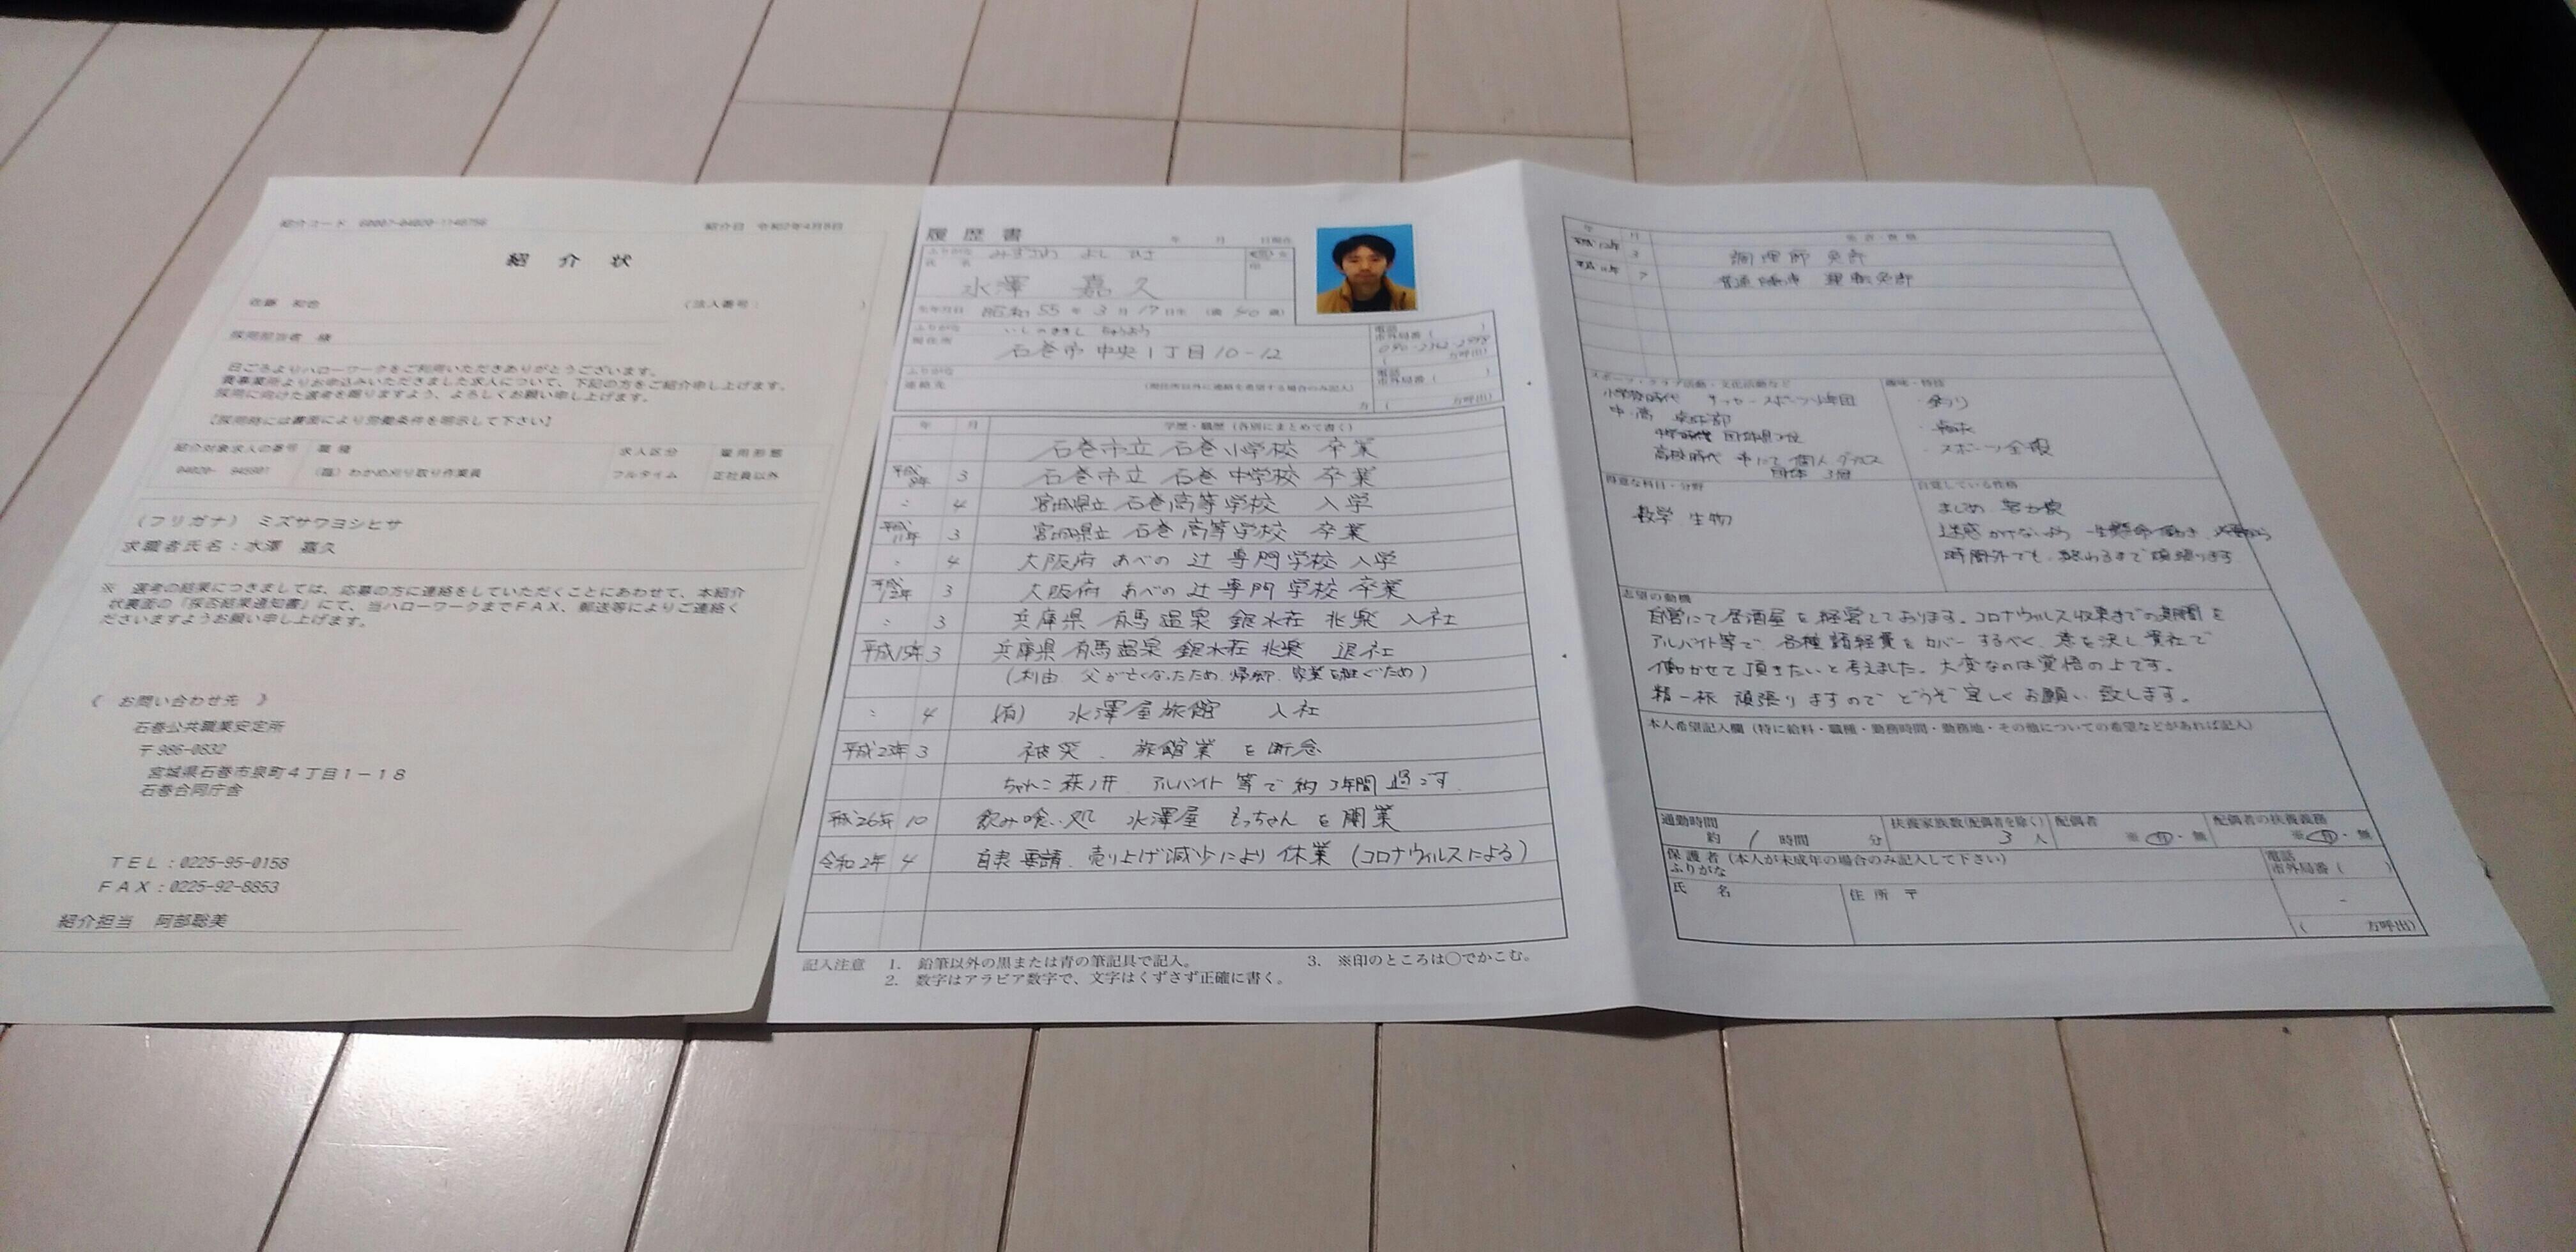 紹介コード
紹介日 令和2年4月8日
紹 介 状
佐藤 和也
(法人番号: )
採用担当者 様
日ごろよりハローワークをご利用いただきありがとうございます。
貴事業所よりお申込みいただきました求人について、下記の方をご紹介申し上げます。
採用に向けた選考を賜りますよう、よろしくお願い申し上げます。
【採用時には書面により労働条件を明示して下さい】
紹介対象求人の番号 職種 求人区分 雇用形態
04020- (臨)わかめ刈り取り作業員 フルタイム 正社員以外
(フリガナ) ミズサワヨシヒサ
求職者氏名:水澤 嘉久
※ 選考の結果につきましては、応募の方に連絡をしていただくことにあわせて、本紹介
状裏面の「採否結果通知書」にて、当ハローワークまでFAX、郵送等によりご連絡く
ださいますようお願い申し上げます。
《 お問い合わせ先 》
石巻公共職業安定所
〒986-0832
宮城県石巻市泉町4丁目1-18
石巻合同庁舎
TEL:0225-95-0158
FAX:0225-92-8853
紹介担当 阿部聡美
履 歴 書 年 月 日現在
ふりがな みずさわ よし ひさ
氏 名 水澤 嘉久 印
生年月日 昭和55年3月17日生 (満40歳)
ふりがな いしのまきし ちゅうおう
現住所 石巻市中央1丁目10-12
電話
市外局番( )
方呼出)
ふりがな
連絡先 (現住所以外に連絡を希望する場合のみ記入) 方
電話
市外局番( )
( 方呼出)
年 月 学歴・職歴(各別にまとめて書く)
石巻市立 石巻小学校 卒業
平成 年 3 石巻市立 石巻中学校 卒業
〃 4 宮城県立 石巻高等学校 入学
平成11年 3 宮城県立 石巻高等学校 卒業
〃 4 大阪府 あべの 辻 専門学校 入学
平成12年 3 大阪府 あべの 辻 専門学校 卒業
〃 3 兵庫県 有馬温泉 銀水荘 兆楽 入社
平成15年 3 兵庫県 有馬温泉 銀水荘 兆楽 退社
(利由 父が亡くなったため、帰郷、家業を継ぐため)
〃 4 (有) 水澤屋旅館 入社
平成23年 3 被災、旅館業を断念
ちゃんこ萩ノ井 アルバイト等で約3年間過ごす
平成26年 10 飲み喰い処 水澤屋 もっちゃんを開業
令和2年 4 自粛要請、売り上げ減少により休業(コロナウィルスによる)
記入注意 1. 鉛筆以外の黒または青の筆記具で記入。 3. ※印のところは○でかこむ。
2. 数字はアラビア数字で、文字はくずさず正確に書く。
年 月 免許・資格
平成12年 3 調理師 免許
平成11年 7 普通自動車 運転免許
スポーツ・クラブ活動・文化活動など
小学校時代 サッカースポーツ少年団
中・高 卓球部
高校時代
団体 3回
趣味・特技
・釣り
・スポーツ全般
得意な科目・分野
数学 生物
自覚している性格
まじめ 努力家
迷惑かけないよう 一生懸命働き、必要なら
時間外でも、終わるまで頑張ります
志望の動機
自営にて居酒屋を経営しております。コロナウィルス収束までの期間を
アルバイト等で、各種諸経費をカバーするべく、意を決し貴社で
働かせて頂きたいと考えました。大変なのは覚悟の上です。
精一杯 頑張りますのでどうぞ宜しくお願い致します。
本人希望記入欄(特に給料・職種・勤務時間・勤務地・その他についての希望などがあれば記入)
通勤時間 約 1 時間 分
扶養家族数(配偶者を除く) 3 人
配偶者 ※ 有・無
配偶者の扶養義務 ※ 有・無
保護者(本人が未成年の場合のみ記入して下さい)
ふりがな
氏 名
住 所 〒
電話
市外局番( )
-
( 方呼出)